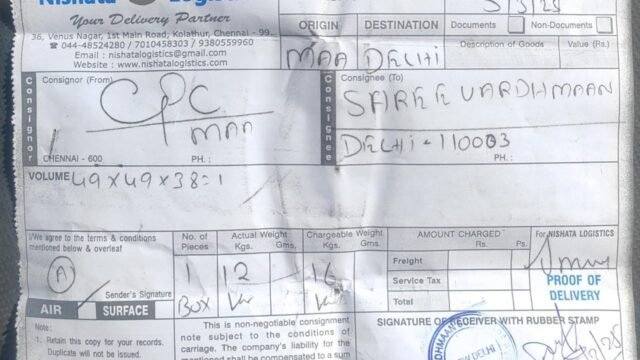 Nishata Logistics
Your Delivery Partner
36, Venus Nagar, 1st Main Road, Kolathur, Chennai - 99.
☎ 044-48524280 / 7010458303 / 9380559960
Email : nishatalogistics@gmail.com
Website : www.nishatalogistics.com
ORIGIN
DESTINATION
MAA
DELHI
5/3/25
Documents
Non-Documents
Description of Goods
Value (Rs.)
Consignor
Consignor (From)
CPC
MAA
CHENNAI - 600
PH. :
Consignee
Consignee (To)
SHREE VARDHMAAN
DELHI - 110003
PH. :
VOLUME 49 x 49 x 38 = 1
I/We agree to the terms & conditions
mentioned below & overleaf
A
Sender's Signature
AIR
SURFACE
No. of Pieces
Actual Weight
Kgs. Gms.
Chargeable Weight
Kgs. Gms.
1 12 16
Box
AMOUNT CHARGED
Rs. Ps.
Freight
Service Tax
Total
For NISHATA LOGISTICS
PROOF OF DELIVERY
Note :
1. Retain this copy for your records.
Duplicate will not be issued.
This is non-negotiable consignment
note subject to the conditions of
carriage. The company's liability for
SIGNATURE OF RECEIVER WITH RUBBER STAMP